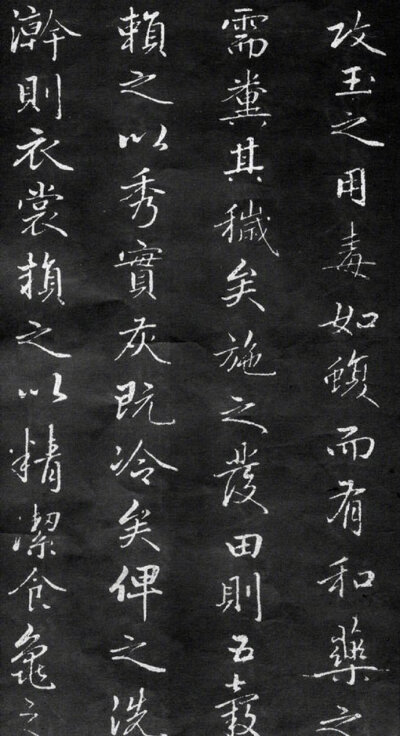 攻玉之用毒如蝮而有和藥之
需糞其穢矣施之發田則五穀
賴之以秀實灰既冷矣俾之洗
澣則衣裳賴之以精潔食龜之